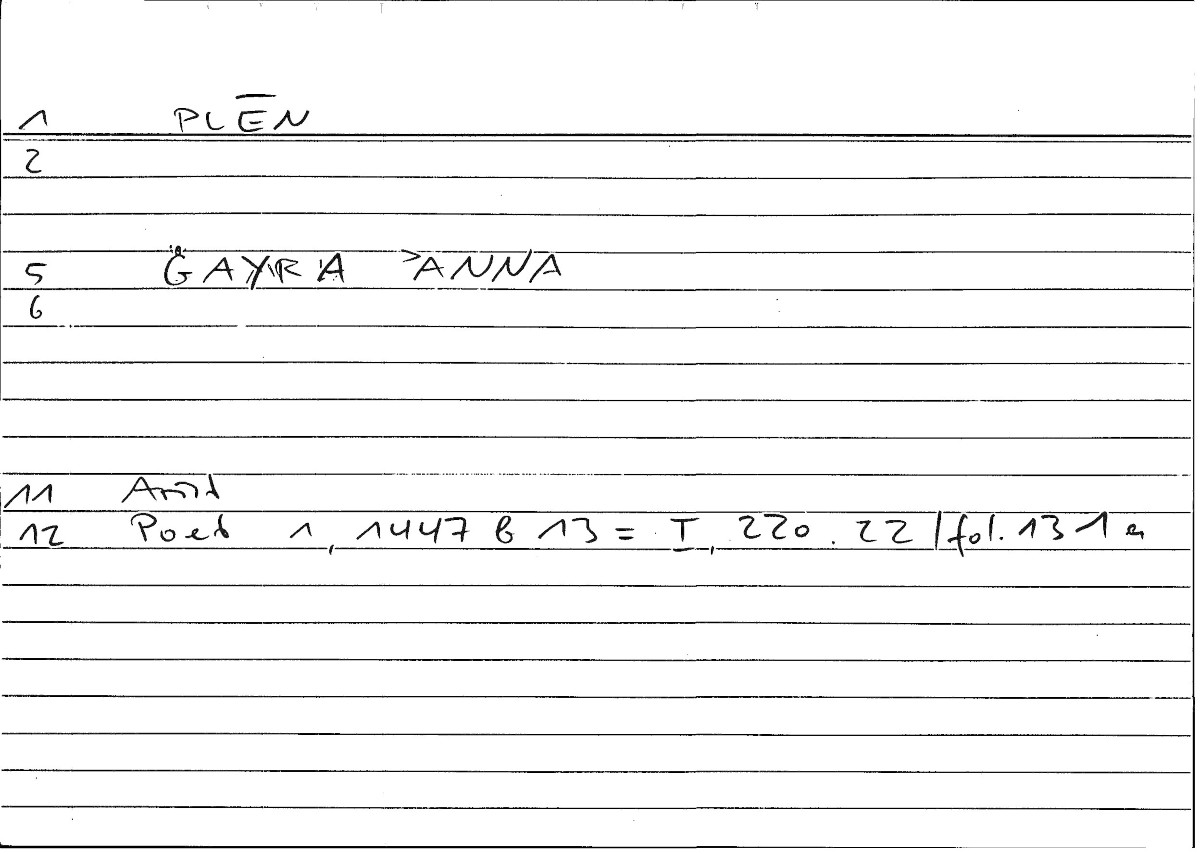 1 PLĒN
2
5 ĠAYRA ʾANNA
6
11 Arist
12 Poet 1, 1447 b 13 = I, 220. 22 / fol. 131 a